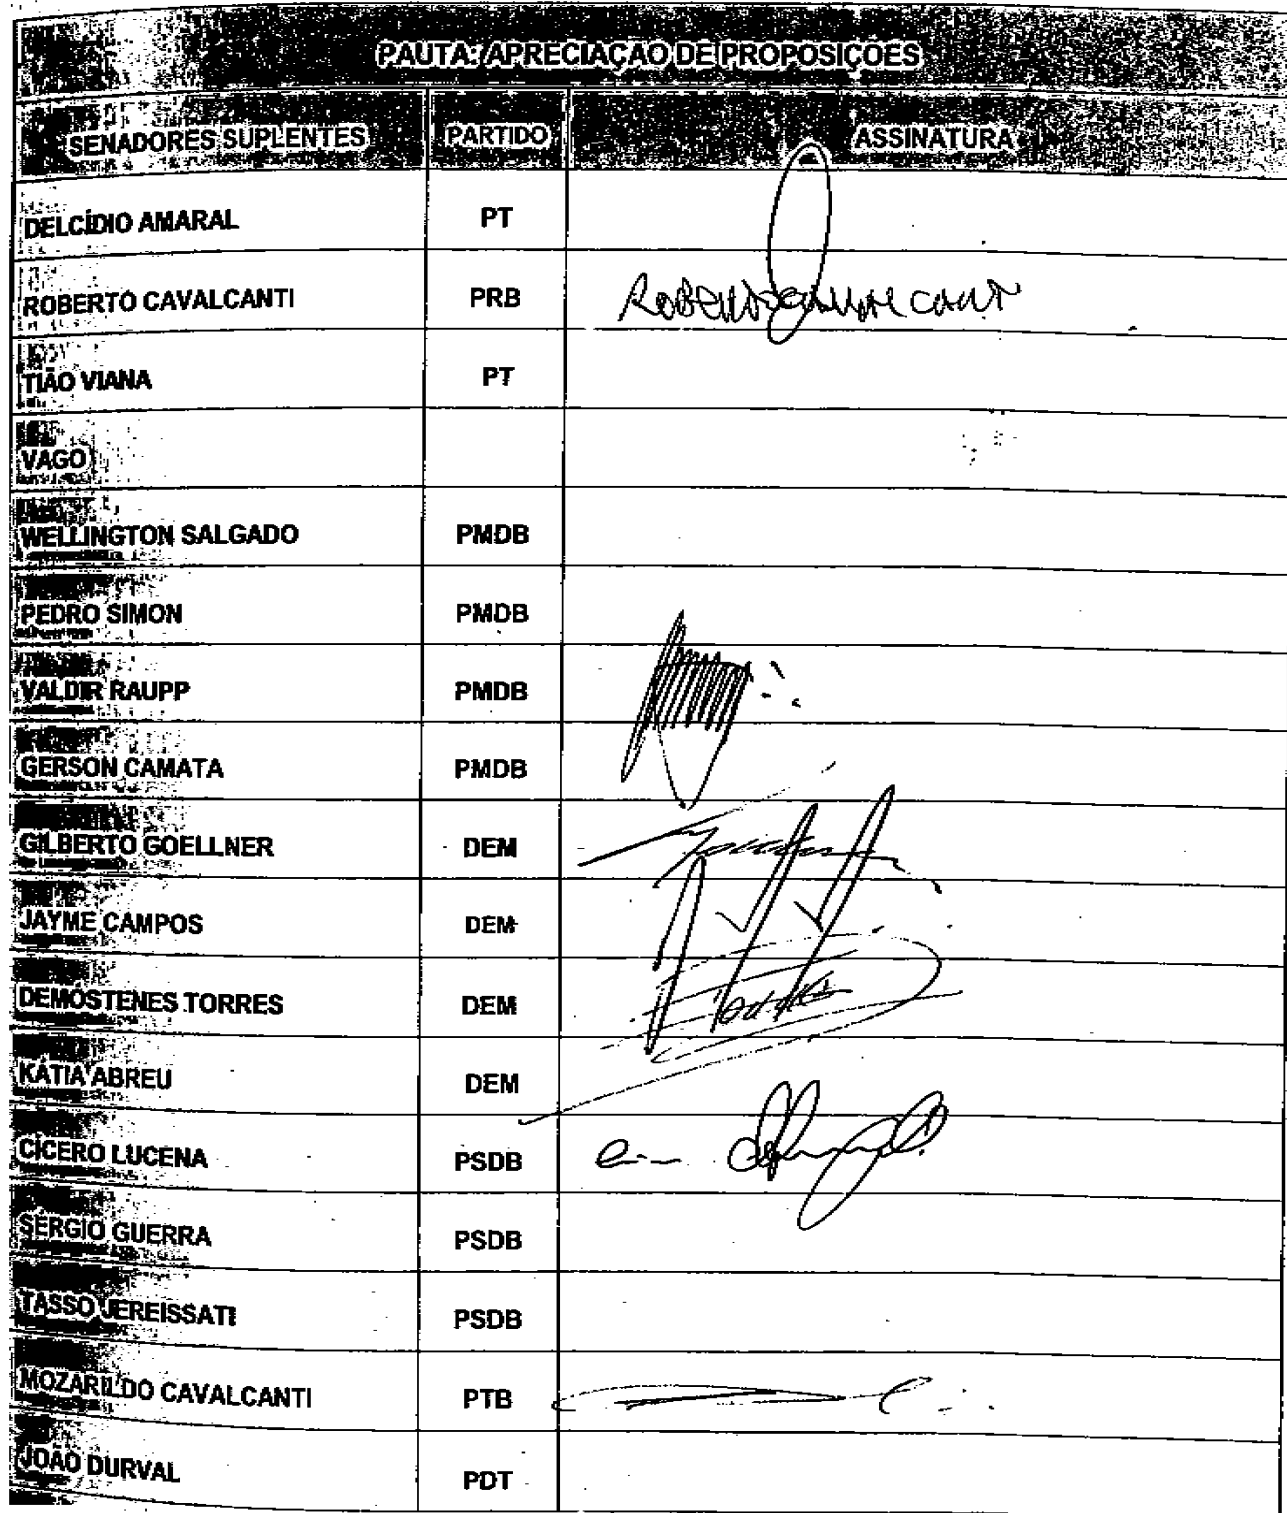 PAUTA: APRECIAÇÃO DE PROPOSIÇÕES
SENADORES SUPLENTES PARTIDO ASSINATURA
DELCÍDIO AMARAL PT
ROBERTO CAVALCANTI PRB
TIÃO VIANA PT
VAGO
WELLINGTON SALGADO PMDB
PEDRO SIMON PMDB
VALDIR RAUPP PMDB
GERSON CAMATA PMDB
GILBERTO GOELLNER DEM
JAYME CAMPOS DEM
DEMÓSTENES TORRES DEM
KÁTIA ABREU DEM
CÍCERO LUCENA PSDB
SÉRGIO GUERRA PSDB
TASSO JEREISSATI PSDB
MOZARILDO CAVALCANTI PTB
JOÃO DURVAL PDT